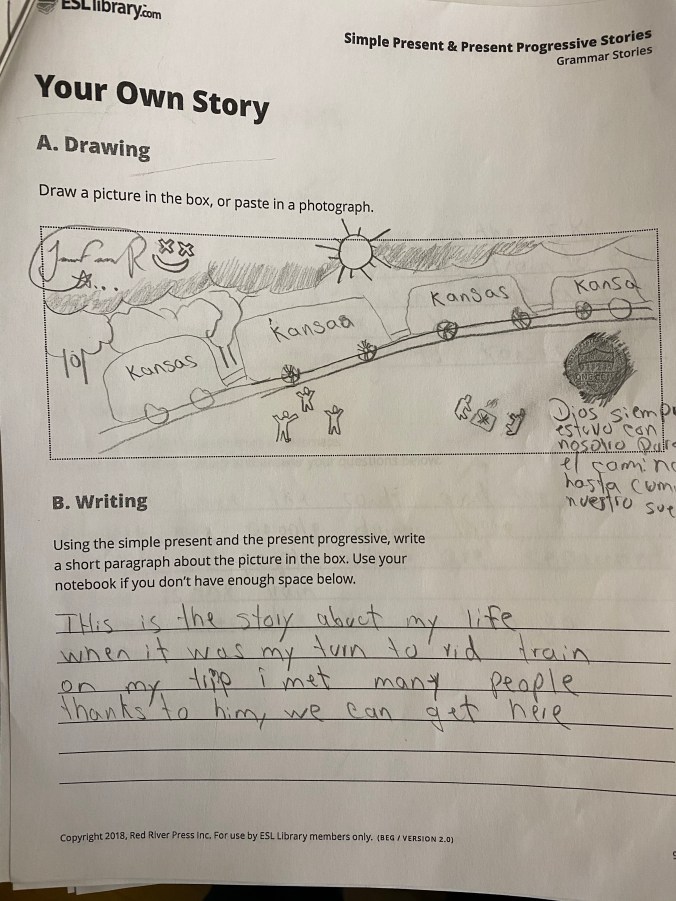 ESLlibrary.com
Simple Present & Present Progressive Stories
Grammar Stories
Your Own Story
A. Drawing
Draw a picture in the box, or paste in a photograph.
Kansas
Kansaa
Kansas
Kansa
Dios siemp
estuvo con
nosotro Dura
el camino
hasta cum
nuestro sue
B. Writing
Using the simple present and the present progressive, write
a short paragraph about the picture in the box. Use your
notebook if you don't have enough space below.
THis is the story about my life
when it was my turn to rid train
on my tripp i met many people
thanks to him, we can get here
Copyright 2018, Red River Press Inc. For use by ESL Library members only. (BEG / VERSION 2.0)